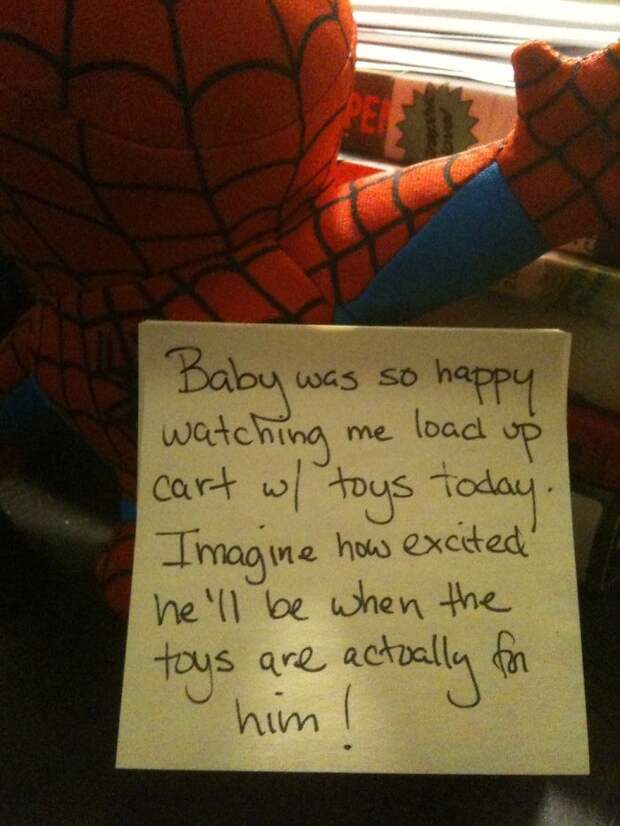 PE
Baby was so happy
watching me load up
cart w/ toys today.
Imagine how excited
he'll be when the
toys are actually for
him!